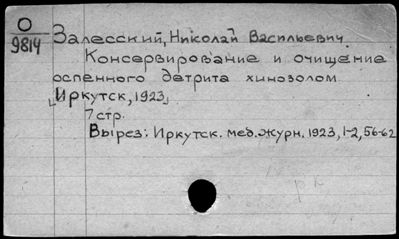 О
9814
Залесский, Николай Васильевич
Консервирование и очищение
оспенного детрита хинозолом
[Иркутск, 1923]
7 стр.
Вырез: Иркутск. мед. журн. 1923, 1-2, 56-62
рк